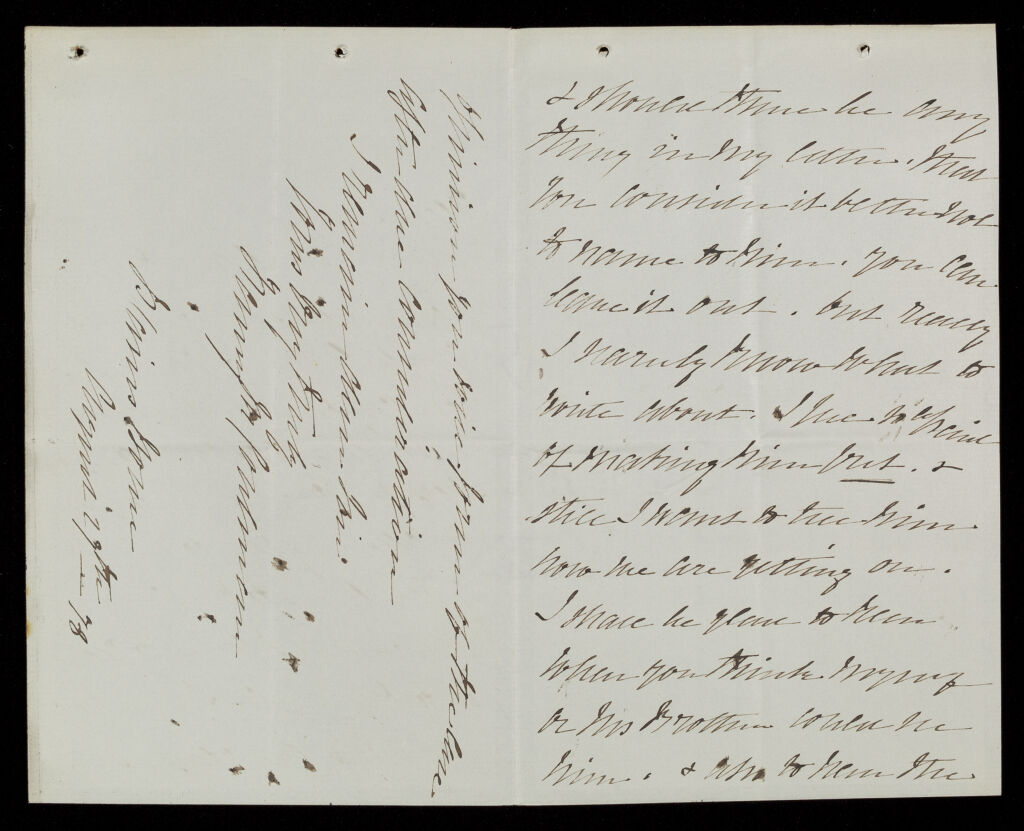 & should there be any
thing in my letter. that
you consider it better not
to name to him. you can
leave it out. but really
I hardly know what to
write about. I feel so afraid
of making him fret. &
still I want to tell him
how we are getting on.
I shall be glad to hear
when you think myself
or his Brother could see
him. & also to hear the
opinion you have form of the case
after the consideration
I remain Dear Sir
yours Very Truly
Mary
Home
August 29th
78